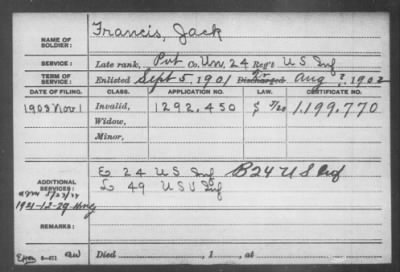 NAME OF SOLDIER: Francis, Jack
SERVICE: Late rank, Pvt Co. Un. 24 Reg't U S Inf
TERM OF SERVICE: Enlisted Sept 5, 1901 Discharged Aug ?, 1902
DATE OF FILING. CLASS. APPLICATION NO. LAW. CERTIFICATE NO.
1903 Nov 1 Invalid, 1292.450 $ 1.199.770
Widow,
Minor,
ADDITIONAL SERVICES: E 24 U S Inf B 24 U S Inf
L 49 U S V Inf
1921-12-29
REMARKS:
Died , 1 , at